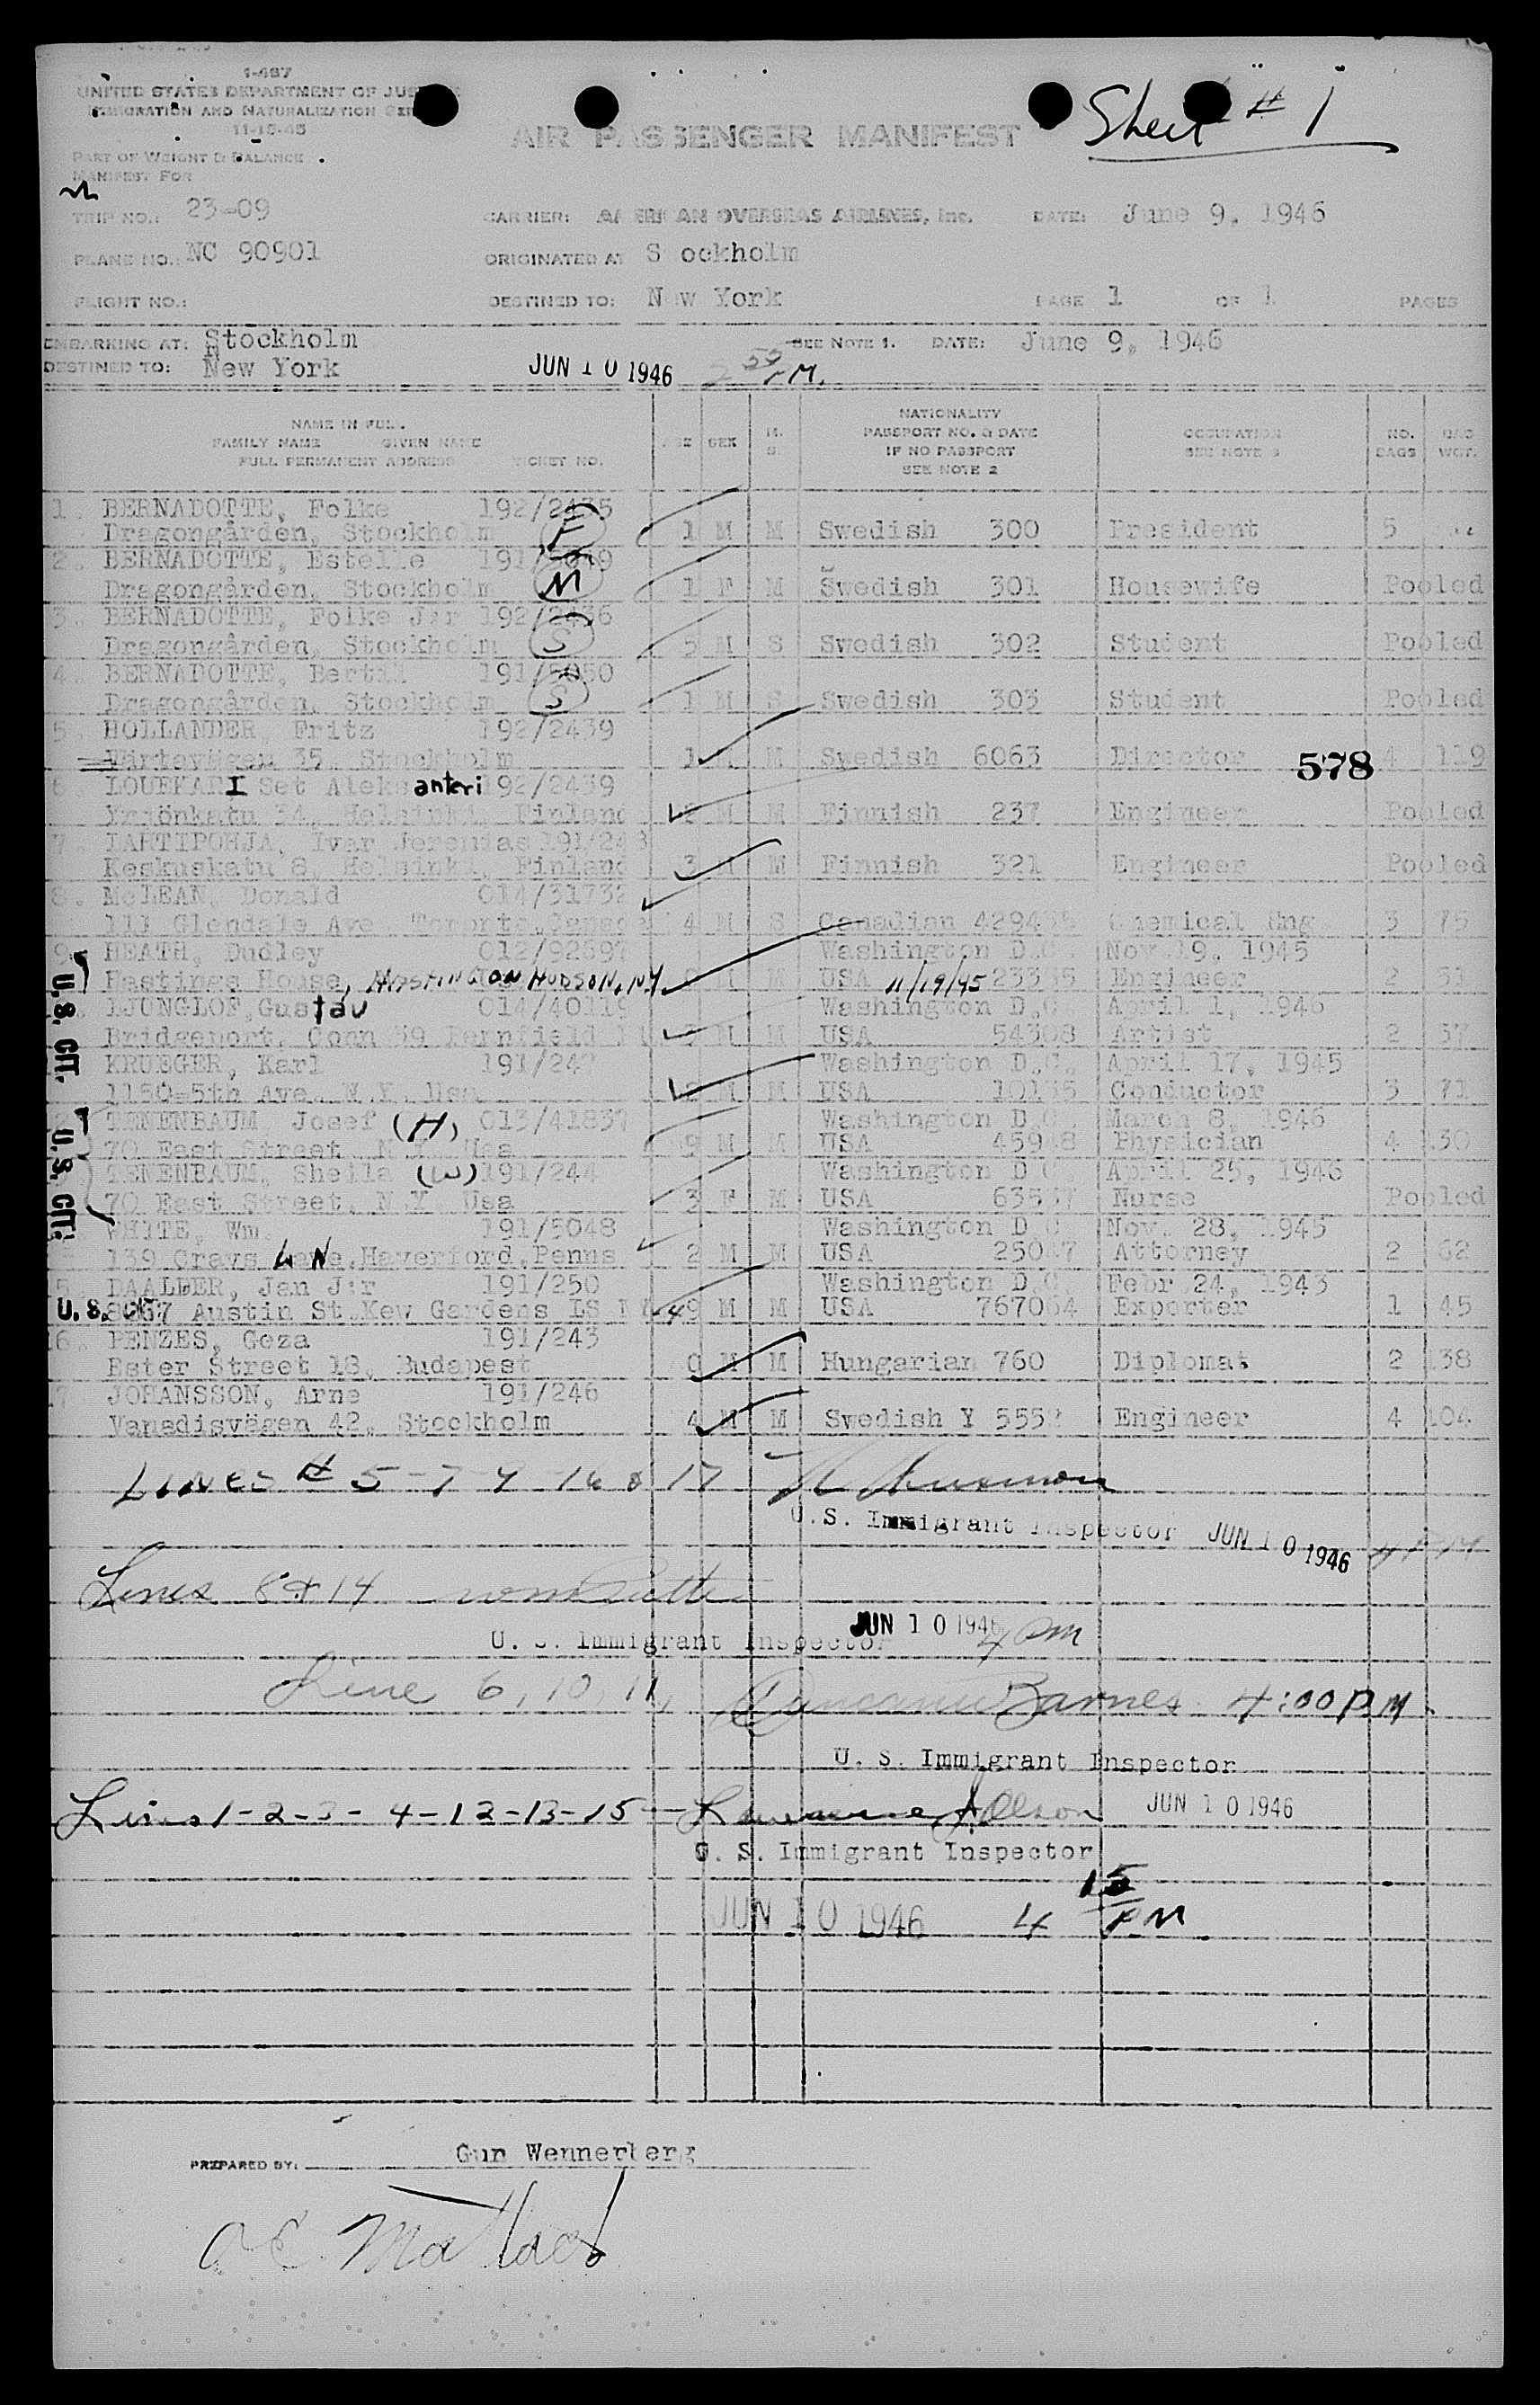 1-487
UNITED STATES DEPARTMENT OF
IMMIGRATION AND NATURALIZATION
11-15-45
AIR PASSENGER MANIFEST
Sheet # 1
PART OF WEIGHT & BALANCE
MANIFEST FOR
TRIP NO.: 23-09 CARRIER: AMERICAN OVERSEAS AIRLINES, Inc. DATE: June 9, 1946
PLANE NO.: NC 90901 ORIGINATED AT S ockholm
FLIGHT NO.: DESTINED TO: New York PAGE 1 OF 1 PAGES
EMBARKING AT: Stockholm SEE NOTE 1. DATE: June 9, 1946
DESTINED TO: New York JUN 10 1946 2 50 P.M.
NAME IN FULL
FAMILY NAME GIVEN NAME
FULL PERMANENT ADDRESS TICKET NO.
AGE SEX M. S.
NATIONALITY
PASSPORT NO. & DATE
IF NO PASSPORT
SEE NOTE 2
OCCUPATION
SEE NOTE 3
NO. BAGS
BAG WGT.
1. BERNADOTTE, Folke 192/2435
Dragongården, Stockholm F 1 M M Swedish 300 President 5
2. BERNADOTTE, Estelle 191/5049
Dragongården, Stockholm M 1 F M Swedish 301 Housewife Pooled
3. BERNADOTTE, Folke J:r 192/2436
Dragongården, Stockholm S 5 M S Swedish 302 Student Pooled
4. BERNADOTTE, Bertil 191/5050
Dragongården, Stockholm S 1 M S Swedish 303 Student Pooled
5. HOLLANDER, Fritz 192/2439
Värtavägen 35, Stockholm 1 M Swedish 6063 Director 4 119
578
6 LOUEKARI Set Aleksanteri 192/2439
Yrjönkatu 34, Helsinki, Finland M M Finnish 237 Engineer Pooled
7 TARTIPOHJA, Ivar Jeremias 191/24
Keskuskatu 8, Helsinki, Finland 3 M M Finnish 321 Engineer Pooled
8. McLEAN, Donald 014/31732
111 Glendale Ave Toronto, Canada 4 M S Canadian Chemical Eng 3 75
9. HEATH, Dudley 012/92697 Washington D.C. Nov.19, 1945
Hastings House, HASTINGS ON HUDSON, N.Y. M USA 11/19/45 Engineer 2 51
LJUNGLOF, Gustav 014/40119 Washington D.C. April 1, 1946
Bridgeport, Conn 59 Fernfield M M USA 54308 Artist 2 57
KRUEGER, Karl 191/242 Washington D.C. April 17, 1945
1150-5th Ave. N.Y. Usa M M USA Conductor 3 71
TENENBAUM Josef (H) 013/41837 Washington D.C. March 8, 1946
70 East Street N.Y. Usa 9 M M USA Physician 4 130
TENENBAUM, Sheila (W) 191/244 Washington D.C. April 25, 1946
70 East Street, N.Y. Usa 3 F M USA Nurse Pooled
WHITE, Wm. 191/5048 Washington D.C. Nov. 28, 1945
139 Grays LN, Haverford, Penns 2 M M USA Attorney 2 62
DAALDER, Jan J:r 191/250 Washington D.C. Febr 24, 1943
Austin St. Kew Gardens 49 M M USA 767064 Exporter 1 45
16. PENZES, Geza 191/243
Ester Street 18, Budapest 0 M M Hungarian 760 Diplomat 2 138
17 JOHANSSON, Arne 191/246
Vanadisvägen 42, Stockholm 4 M M Swedish Y Engineer 4 104
U.S. CIT.
U.S. CIT.
U.S. CIT.
LINES # 5 - 7 - 9 - 16 & 17
U.S. Immigrant Inspector JUN 10 1946 4 PM
Lines 8 & 14
JUN 10 1946 4 pm
U. S. Immigrant Inspector
Line 6, 10, 11, Barnes 4:00 P.M.
U. S. Immigrant Inspector
Lines 1-2-3-4-12-13-15 - Lawrence J. Olson JUN 10 1946
U. S. Immigrant Inspector
JUN 10 1946 4 15 P.M.
PREPARED BY: Gun Wennerberg